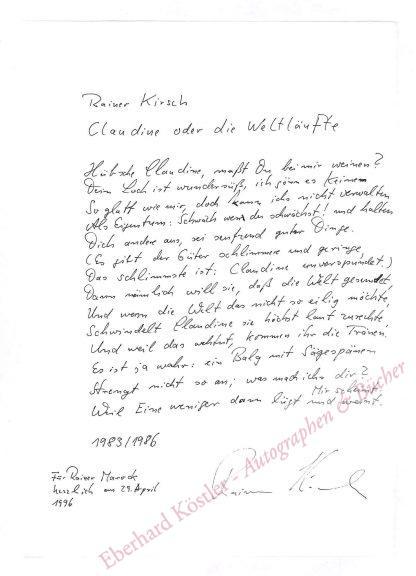 Rainer Kirsch
Claudine oder die Weltläufte
Hübsche Claudine, mußt Du bei mir weinen?
Dein Loch ist wundersüß, ich gönn es Keinem
So glatt wie mir, doch kann ichs nicht verwalten
Als Eigentum: Schwach wenn du schwächst! und halten
Dich andre aus, sei seufzend guter Dinge.
(Es gibt der Güter schlimmre und geringe,
Das schlimmste ist: Claudine unverspundet.)
Dann nämlich will sie, daß die Welt gesundet,
Und wenn die Welt das nicht so eilig möchte,
Schwindelt Claudine sie höchst laut zurechte
Und weil das wehtut, kommen ihr die Tränen.
Es ist ja wahr: ein Balg mit Sägespänen
Strengt nicht so an; was mach ich dir?
Mir scheint
Weil Eine weniger dann lügt und weint.
1983/1986
Für Rainer
herzlich am 29. April
1996
Rainer K
Eberhard Köstler - Autographen & Bücher